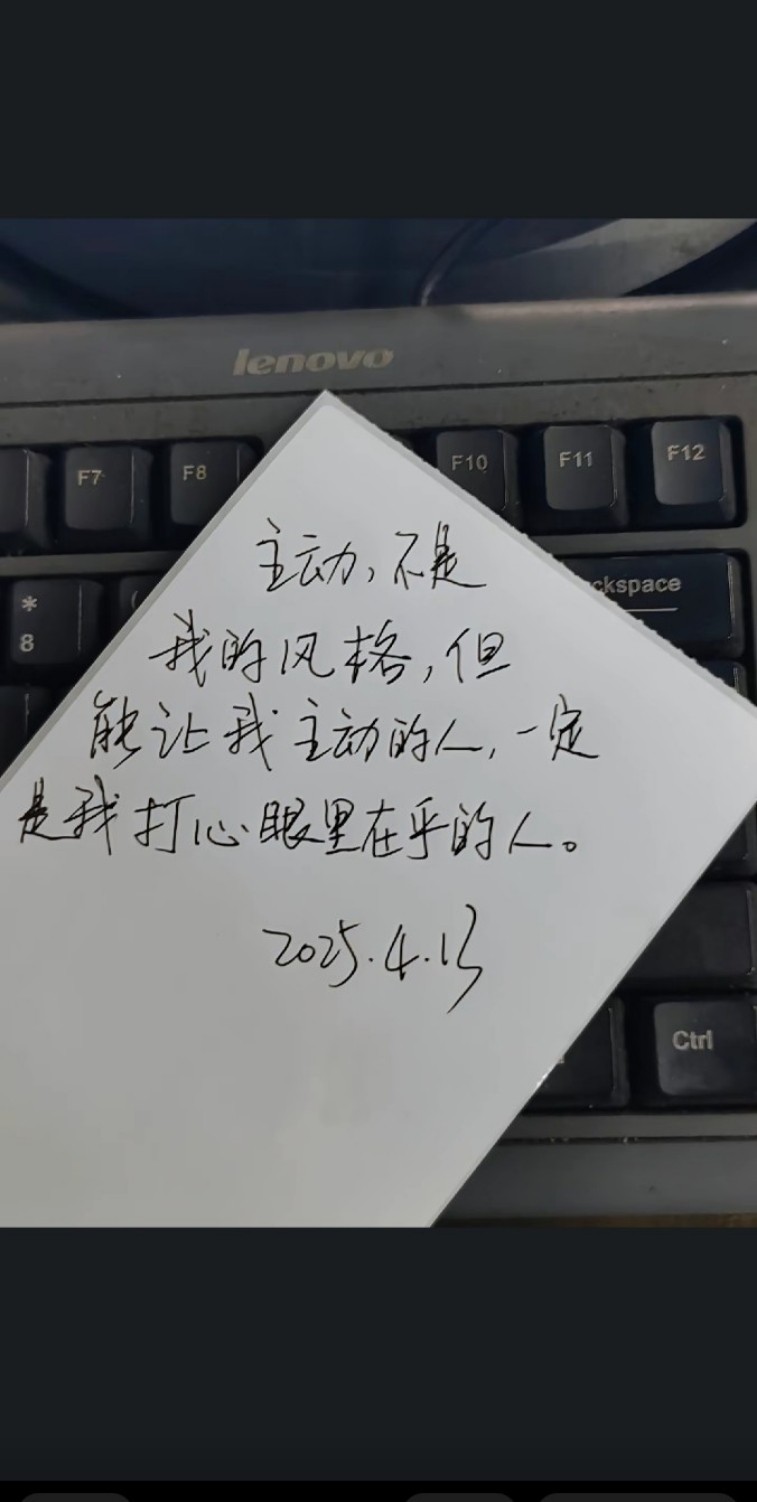 lenovo
F7 F8 F10 F11 F12
主动,不是
ckspace
*
8
我的风格,但
能让我主动的人,一定
是我打心眼里在乎的人。
2025.4.13
Ctrl